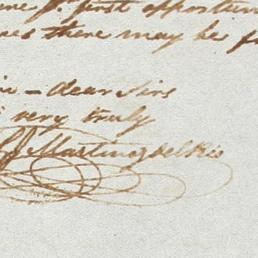 first opportun
there may be
dear Sirs
very truly
J Martinez del Rio